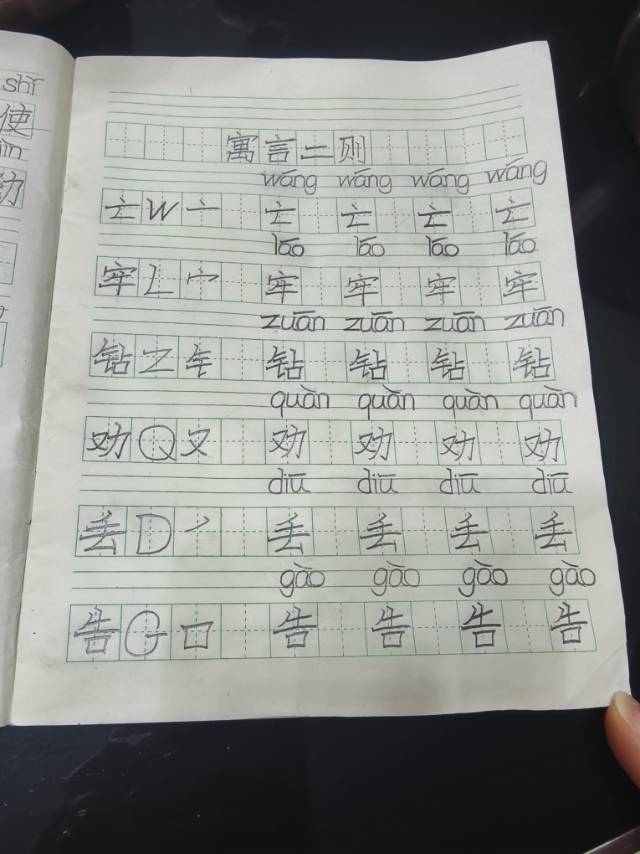 shǐ
使
寓言二则
wáng wáng wáng wáng
亡 W 亠 亡 亡 亡 亡
láo láo láo láo
牢 L 宀 牢 牢 牢 牢
zuān zuān zuān zuān
钻 Z 钅 钻 钻 钻 钻
quàn quàn quàn quàn
劝 Q 又 劝 劝 劝 劝
diū diū diū diū
丢 D 丿 丢 丢 丢 丢
gào gào gào gào
告 G 口 告 告 告 告